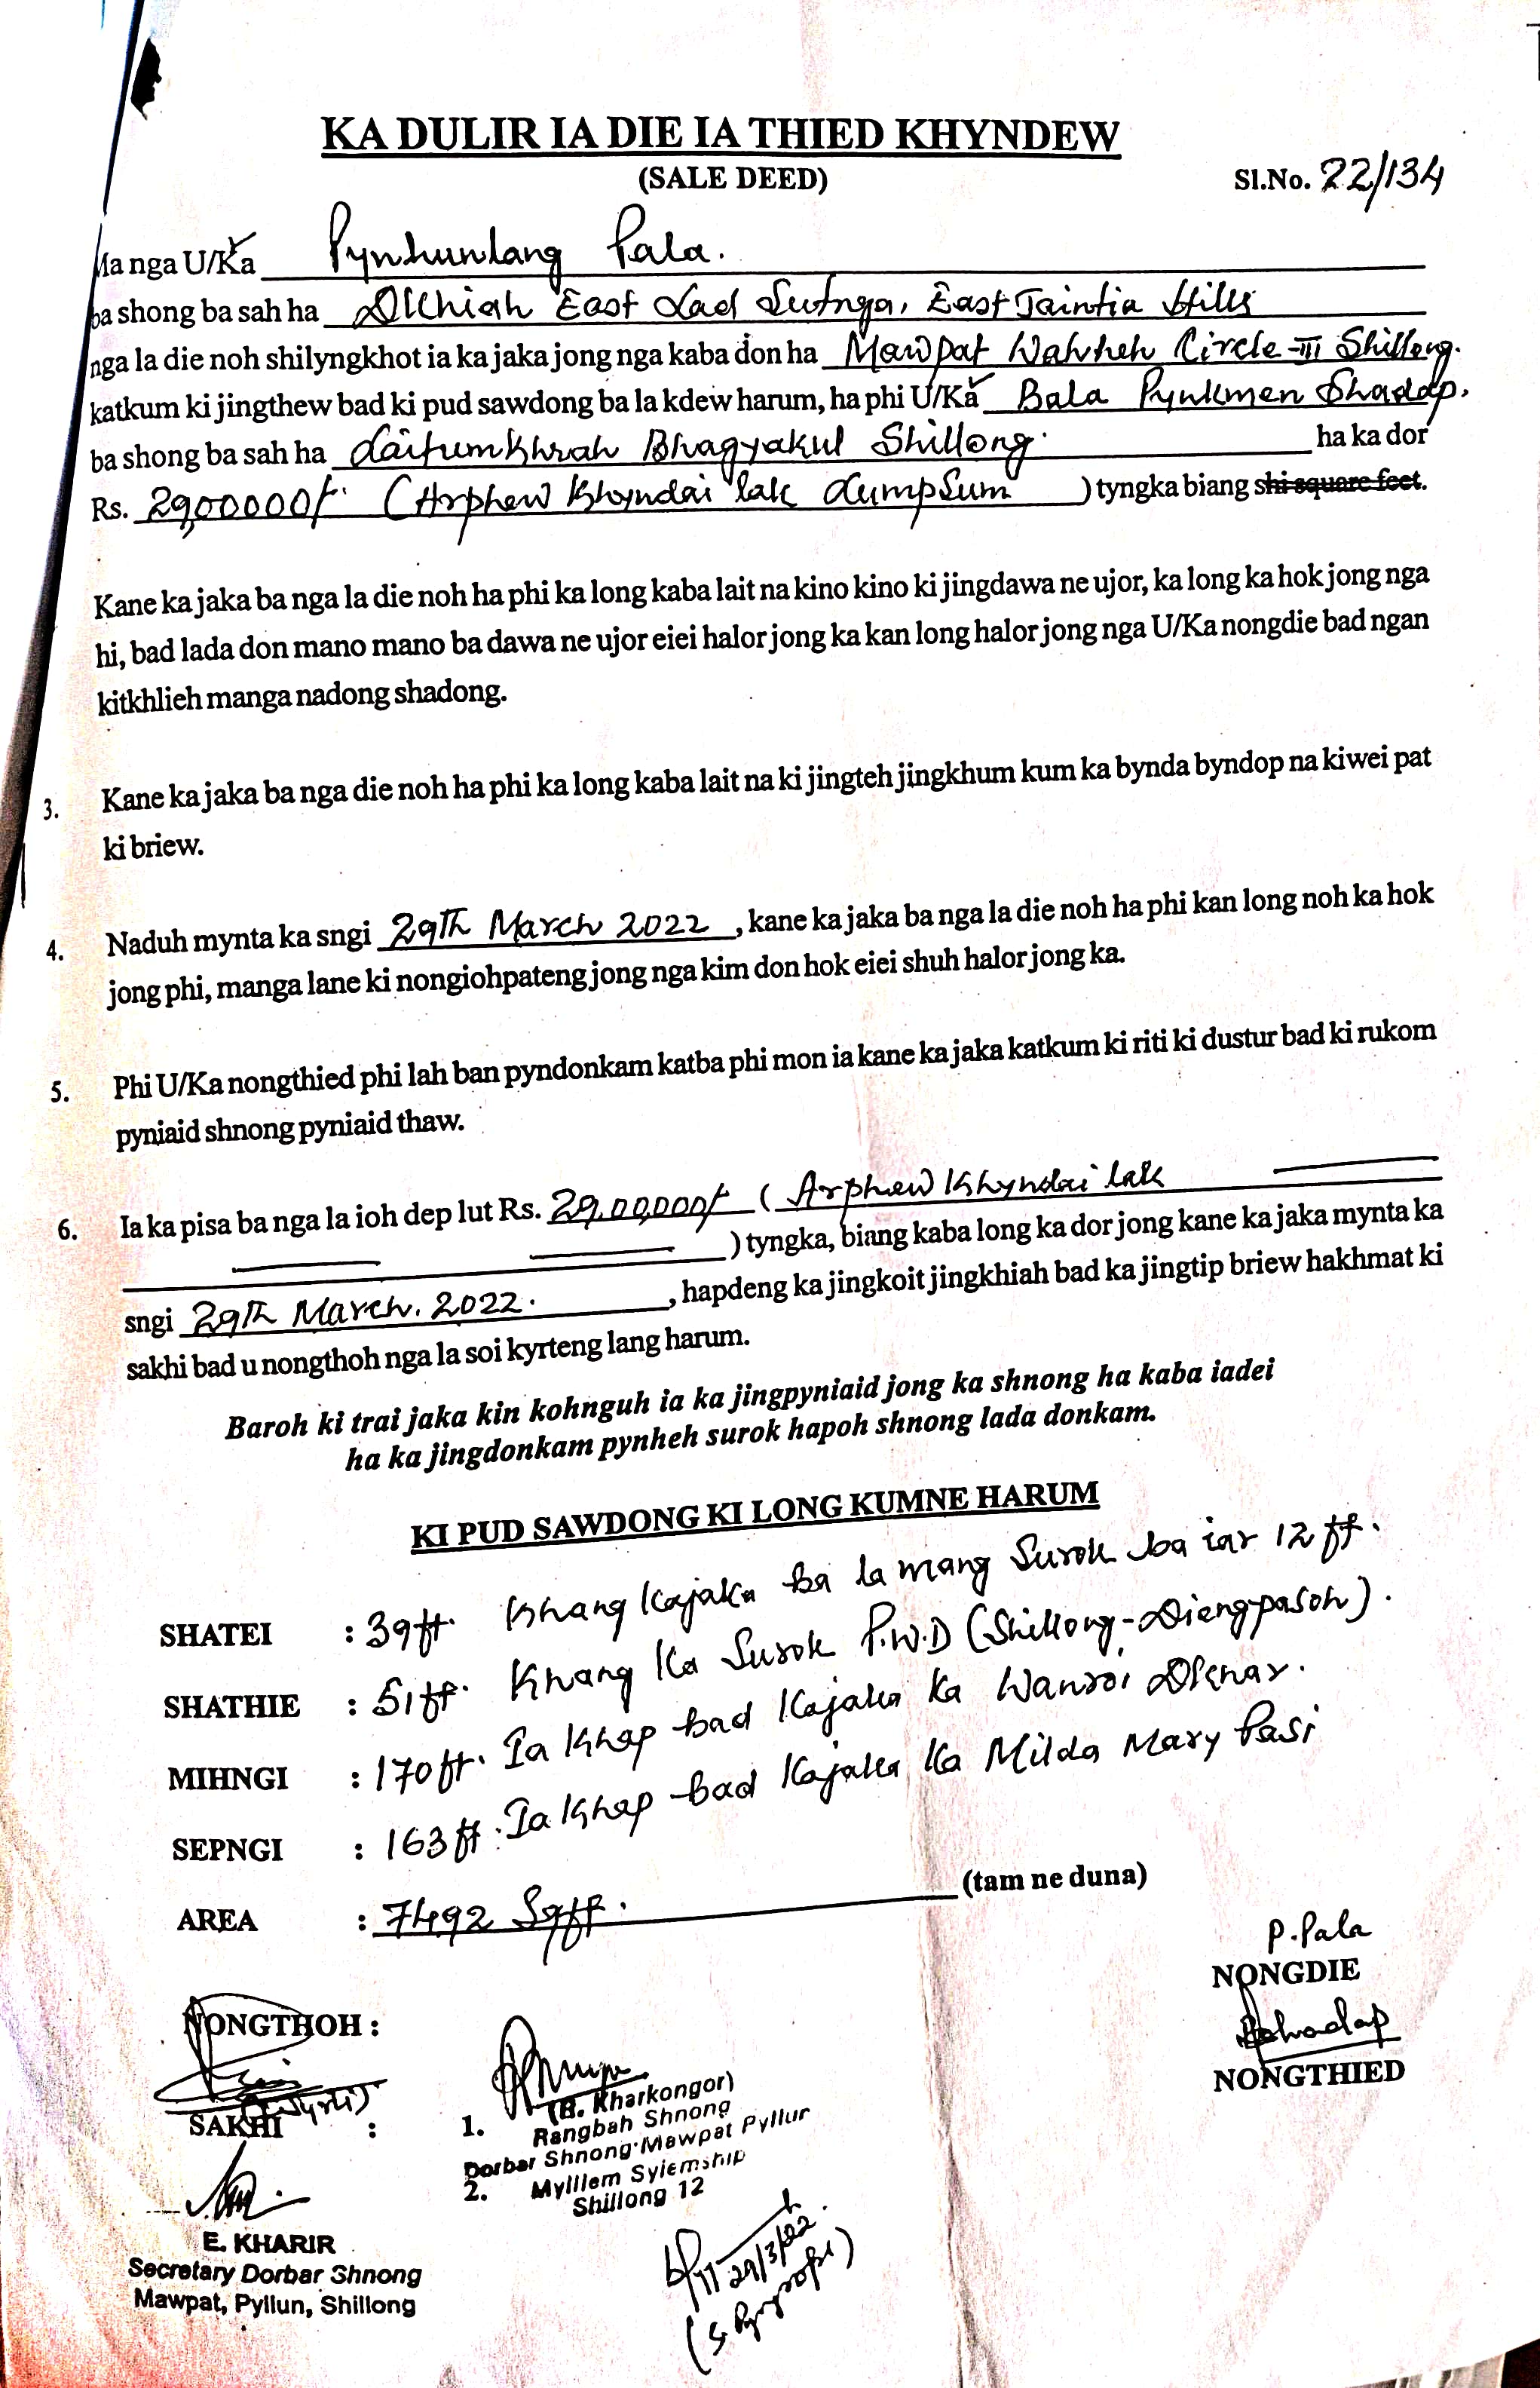 KA DULIR IA DIE IA THIED KHYNDEW
(SALE DEED)
Sl.No. 22/134
Ma nga U/Ka Pynhunlang Pala.
ba shong ba sah ha Dkhiah East Lad Sutnga, East Jaintia Hills
nga la die noh shilyngkhot ia ka jaka jong nga kaba don ha Mawpat Wahkheh Circle-III Shillong.
katkum ki jingthew bad ki pud sawdong ba la kdew harum, ha phi U/Ka Bala Pynkmen Shadap.
ba shong ba sah ha Laitumkhrah Bhagyakul Shillong. ha ka dor
Rs. 29,00000/- (Arphew Khyndai lak Lumpsum ) tyngka biang shi square feet.
Kane ka jaka ba nga la die noh ha phi ka long kaba lait na kino kino ki jingdawa ne ujor, ka long ka hok jong nga
hi, bad lada don mano mano ba dawa ne ujor eiei halor jong ka kan long halor jong nga U/Ka nongdie bad ngan
kitkhlieh manga nadong shadong.
3. Kane ka jaka ba nga die noh ha phi ka long kaba lait na ki jingteh jingkhum kum ka bynda byndop na kiwei pat
ki briew.
4. Naduh mynta ka sngi 29Th March 2022, kane ka jaka ba nga la die noh ha phi kan long noh ka hok
jong phi, manga lane ki nongiohpateng jong nga kim don hok eiei shuh halor jong ka.
5. Phi U/Ka nongthied phi lah ban pyndonkam katba phi mon ia kane ka jaka katkum ki riti ki dustur bad ki rukom
pyniaid shnong pyniaid thaw.
6. Ia ka pisa ba nga la ioh dep lut Rs. 29,00,000/- ( Arphew Khyndai lak
) tyngka, biang kaba long ka dor jong kane ka jaka mynta ka
sngi 29Th March. 2022. , hapdeng ka jingkoit jingkhiah bad ka jingtip briew hakhmat ki
sakhi bad u nongthoh nga la soi kyrteng lang harum.
Baroh ki trai jaka kin kohnguh ia ka jingpyniaid jong ka shnong ha kaba iadei
ha ka jingdonkam pynheh surok hapoh shnong lada donkam.
KI PUD SAWDONG KI LONG KUMNE HARUM
SHATEI : 39ft. Khang Kajaka ba la mang Surok ba iar 12 ft.
SHATHIE : 51ft. Khang Ka Surok P.W.D (Shillong-Diengpasoh).
MIHNGI : 170ft. Ia Khap bad Kajaka ka Wansoi Dkhar.
SEPNGI : 163ft. Ia Khap bad Kajaka Ka Milda Mary Pasi
AREA : 7492 Sqft. (tam ne duna)
P. Pala
NONGDIE
NONGTHOH :
Shadap
NONGTHIED
SAKHI :
1. (B. Kharkongor)
Rangbah Shnong
Dorbar Shnong Mawpat Pyllur
2. Mylliem Syiemship
Shillong 12
E. KHARIR
Secretary Dorbar Shnong
Mawpat, Pyllun, Shillong
29/3/22